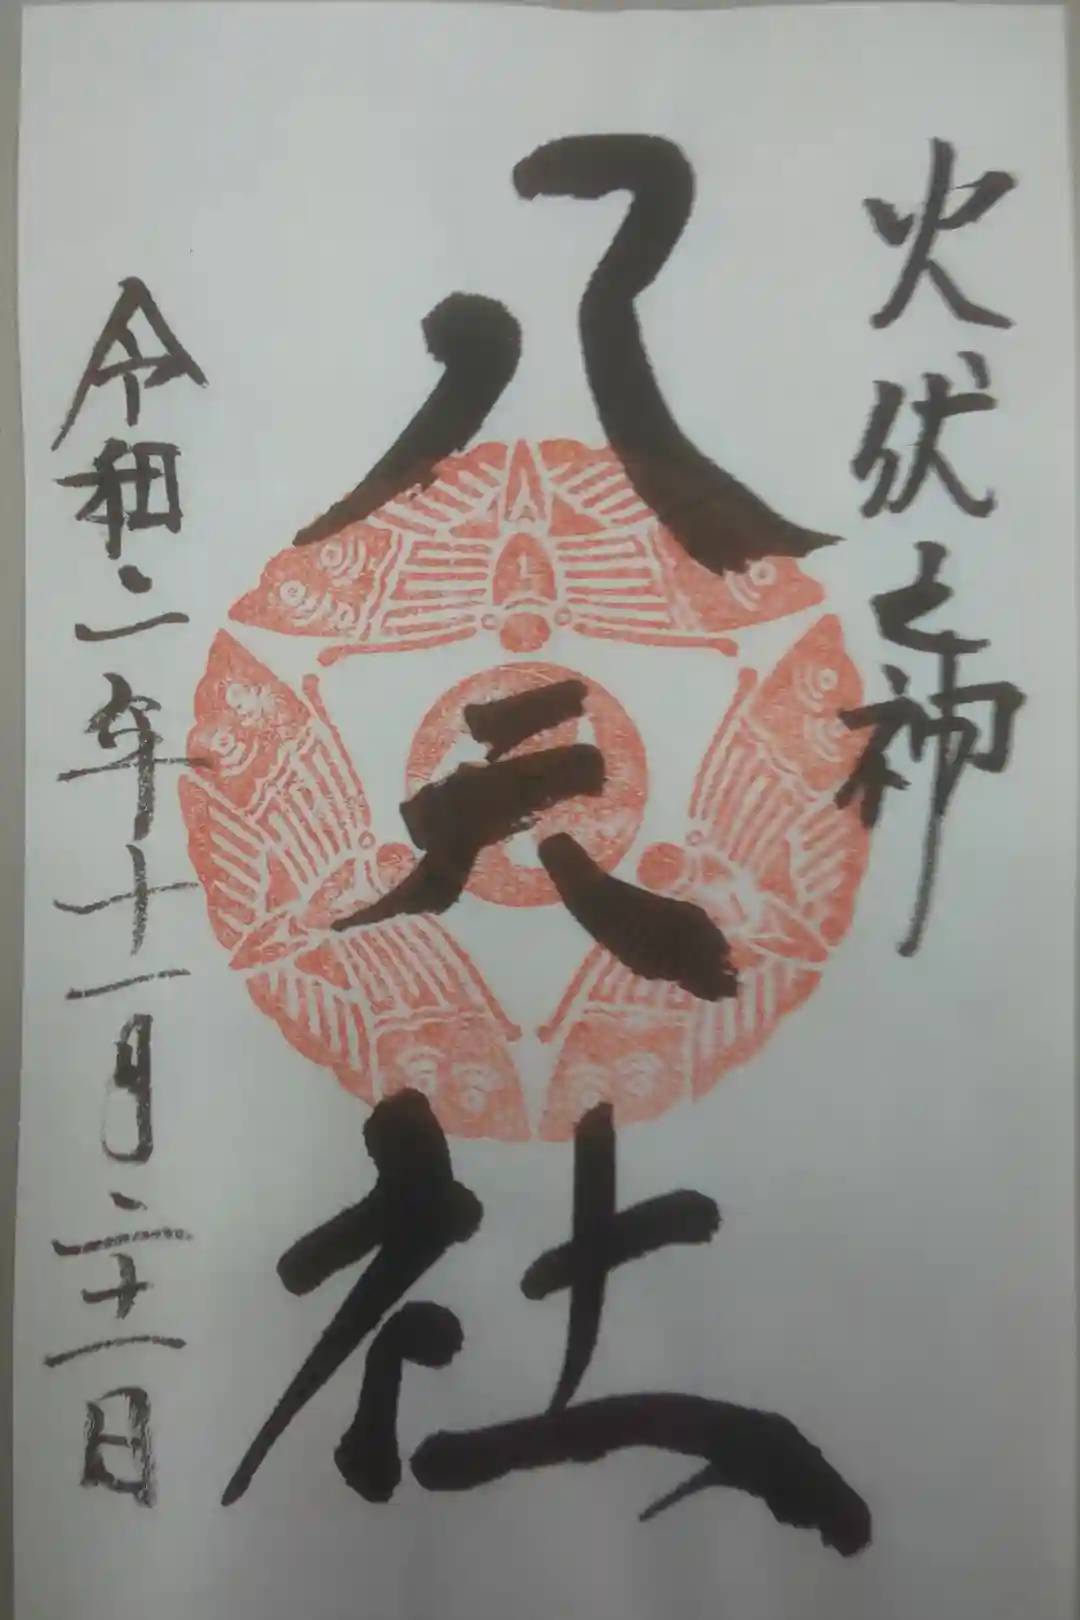 火伏之神
八天社
令和二年十一月二十一日